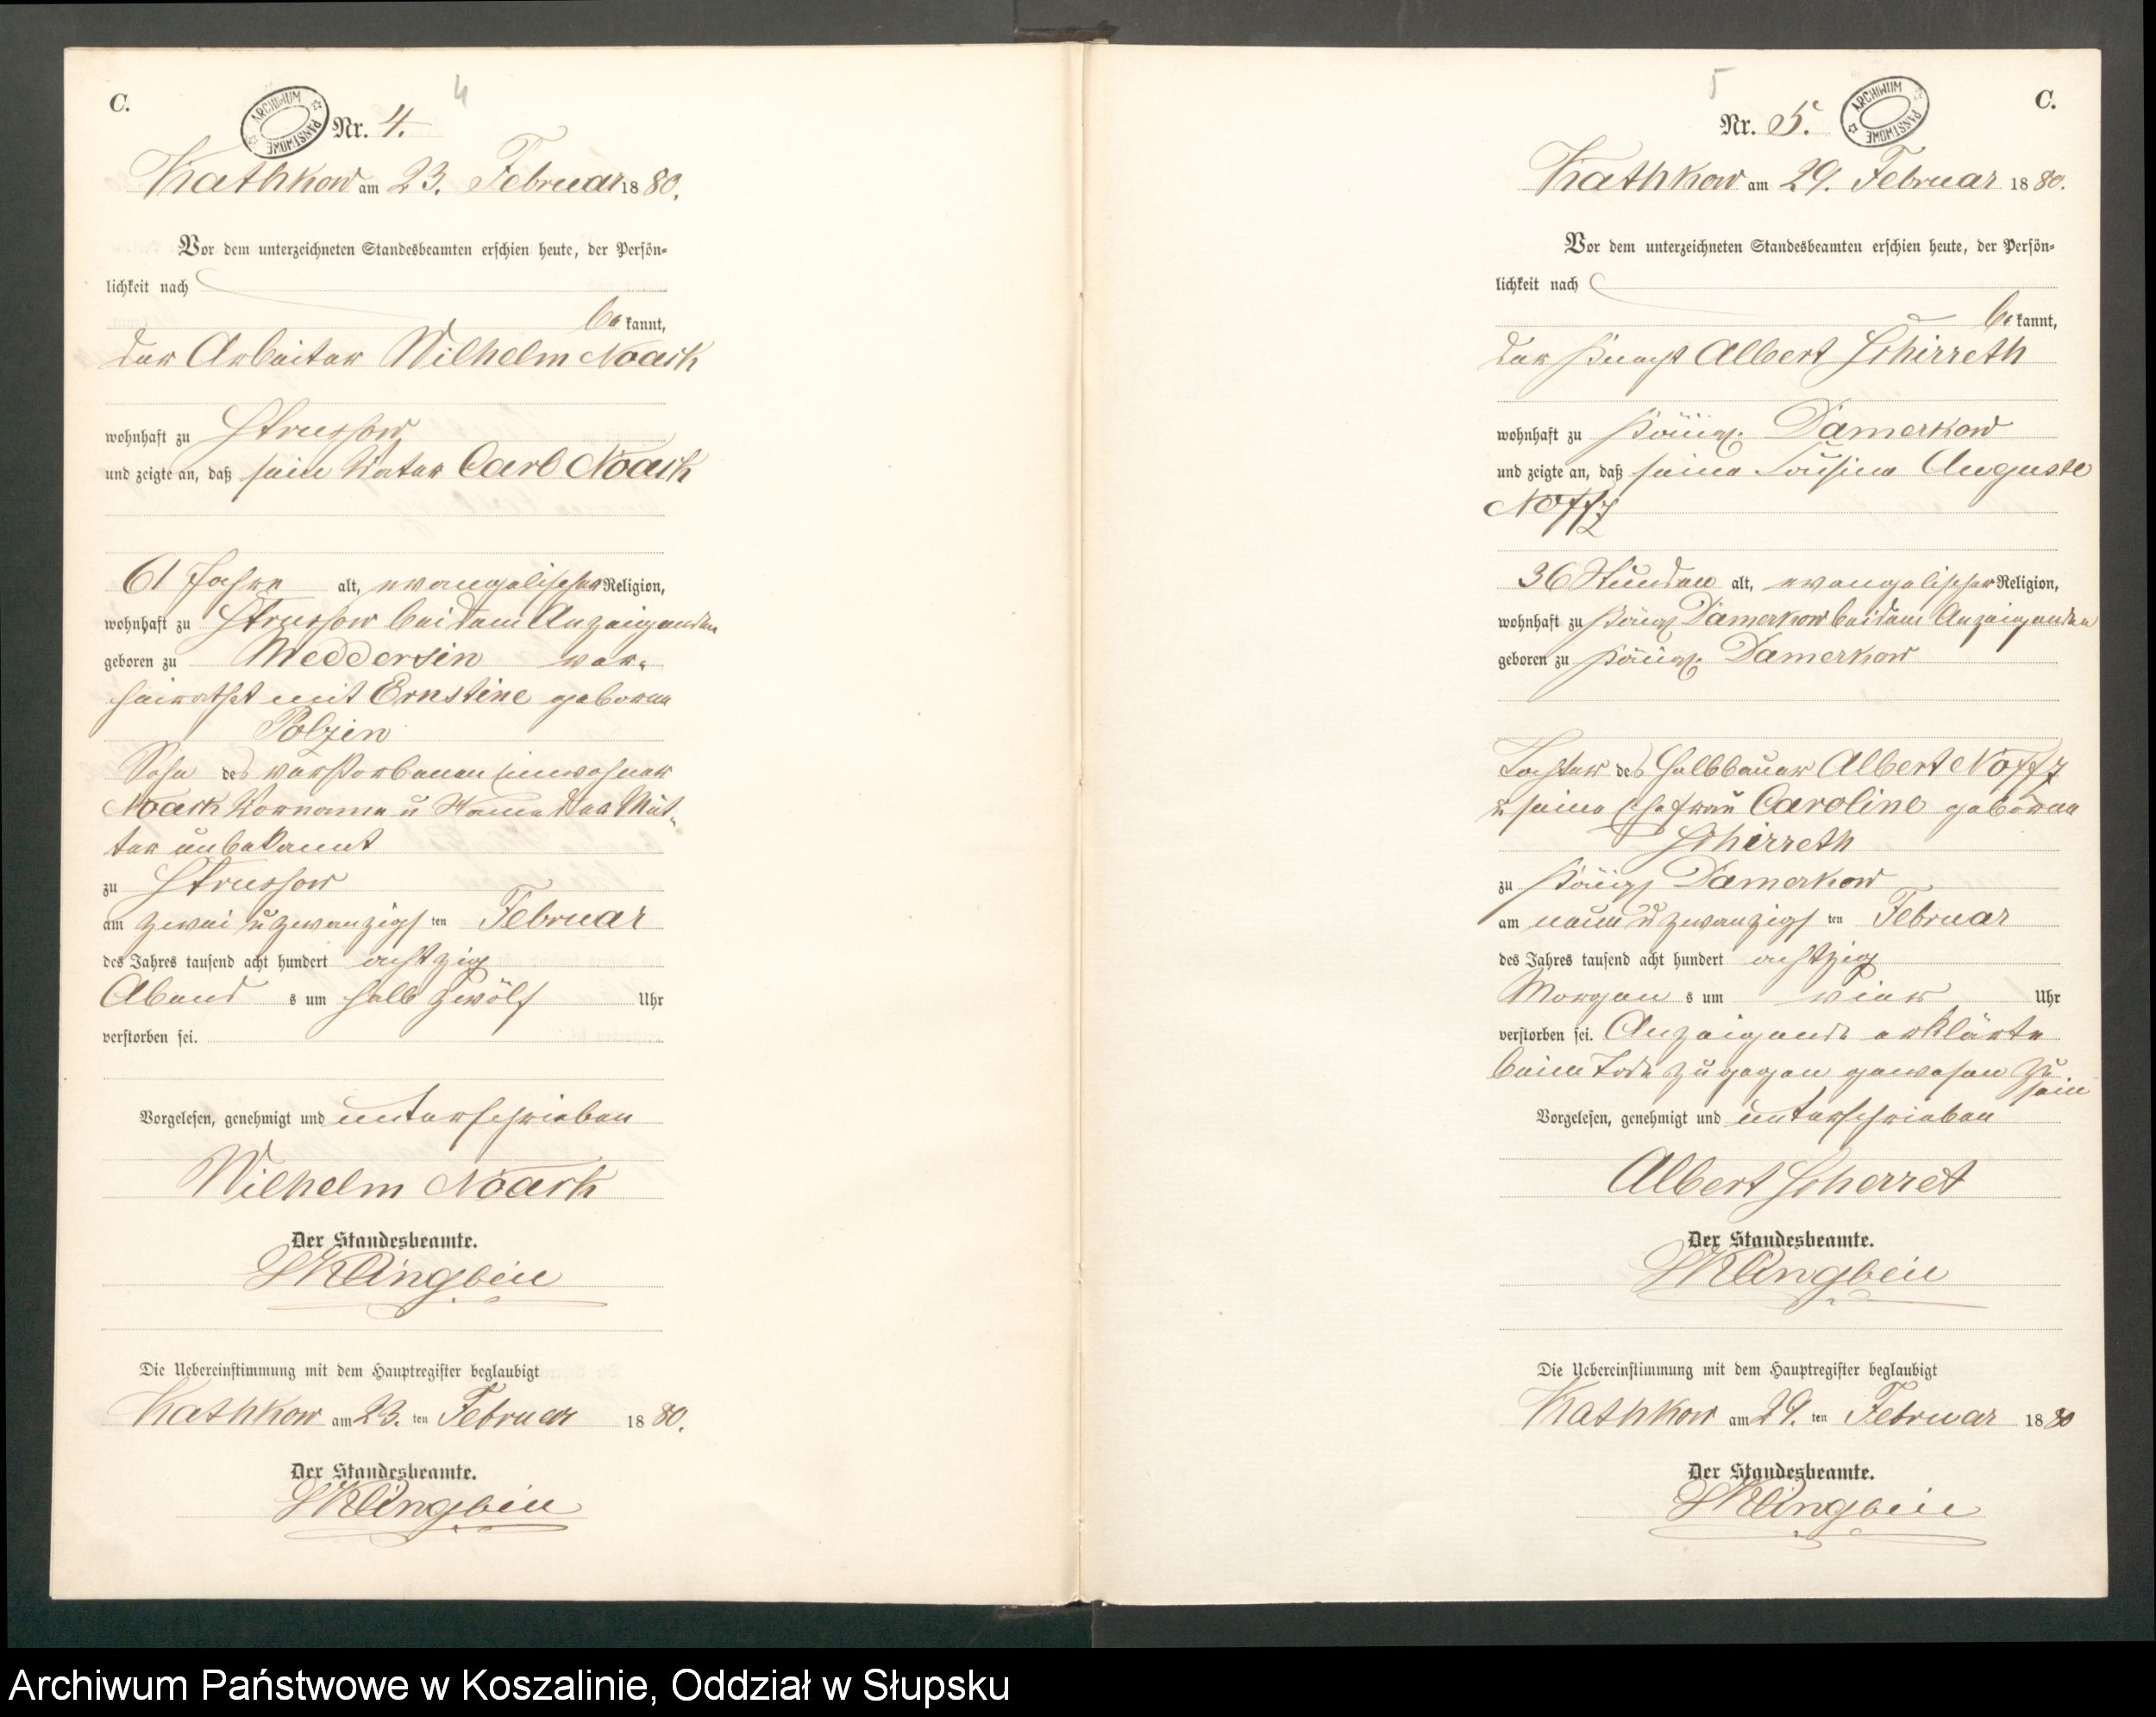 C.
4
ARCHIWUM PAŃSTWOWE
Nr. 4.
Kathkow am 23. Februar 1880.
Vor dem unterzeichneten Standesbeamten erschien heute, der Persön-
lichkeit nach
bekannt,
der Arbeiter Wilhelm Noack
wohnhaft zu Strussow
und zeigte an, daß sein Vater Carl Noack
61 Jahre alt, evangelischer Religion,
wohnhaft zu Strussow bei dem Anzeigenden
geboren zu Meddersin ver-
heirathet mit Ernstine geborne
Polzin
Sohn des verstorbenen Einwohner
Noack Vorname u Name der Mut-
ter unbekannt
zu Strussow
am zwei u zwanzigsten Februar
des Jahres tausend acht hundert achtzig
Abends um halb zwölf Uhr
verstorben sei.
Vorgelesen, genehmigt und unterschrieben
Wilhelm Noack
Der Standesbeamte.
Klingbeil
Die Uebereinstimmung mit dem Hauptregister beglaubigt
Kathkow am 23. ten Februar 1880.
Der Standesbeamte.
Klingbeil
5
C.
Nr. 5.
ARCHIWUM PAŃSTWOWE
Kathkow am 29. Februar 1880.
Vor dem unterzeichneten Standesbeamten erschien heute, der Persön-
lichkeit nach
bekannt,
der Knecht Albert Schirreth
wohnhaft zu Königl. Damerkow
und zeigte an, daß seine Cousine Auguste
Nöffz
36 Stunden alt, evangelischer Religion,
wohnhaft zu Königl Damerkow bei dem Anzeigenden
geboren zu Königl. Damerkow
Tochter des Halbbauer Albert Nöffz
u seine Ehefrau Caroline geborne
Schirreth
zu Königl Damerkow
am neun u zwanzigsten Februar
des Jahres tausend acht hundert achtzig
Morgens um vier Uhr
verstorben sei. Anzeigende erklärte
beim Tode zugegen gewesen zu
sein
Vorgelesen, genehmigt und unterschrieben
Albert Scherret
Der Standesbeamte.
Klingbeil
Die Uebereinstimmung mit dem Hauptregister beglaubigt
Kathkow am 29. ten Februar 1880
Der Standesbeamte.
Klingbeil
Archiwum Państwowe w Koszalinie, Oddział w Słupsku